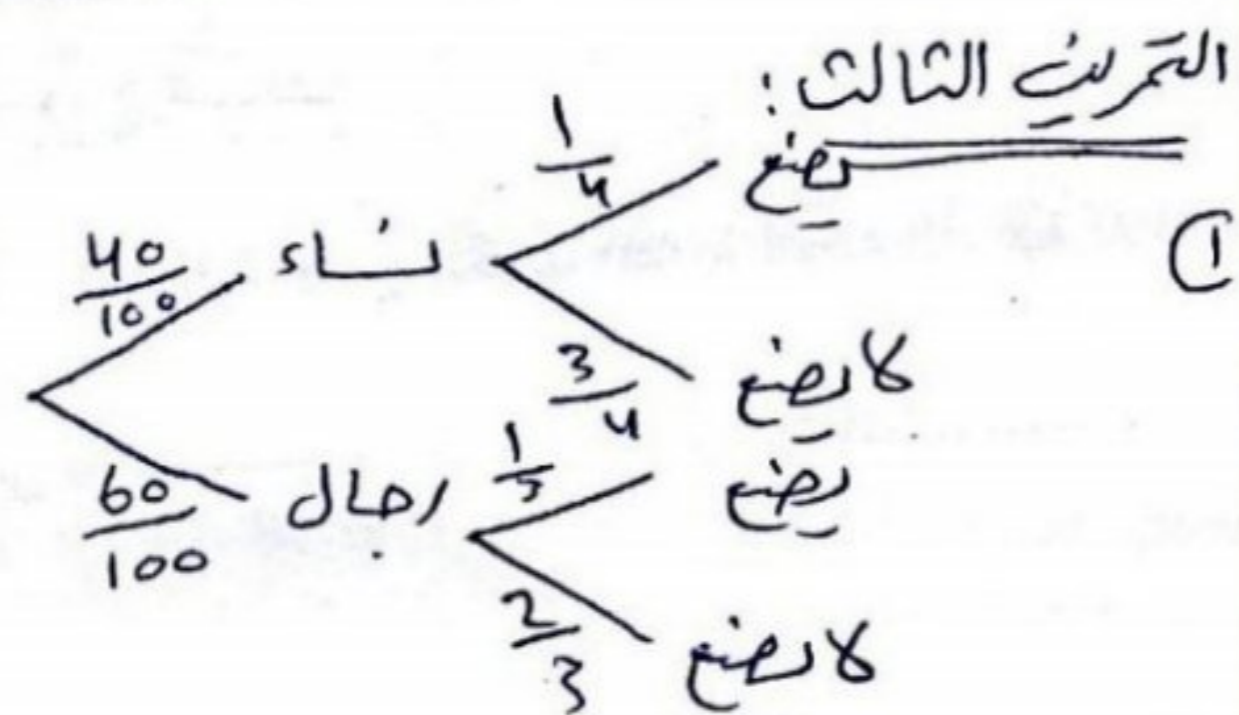 التمرين الثالث:
①
40/100 نساء 1/4 يضع
3/4 لا يضع
60/100 رجال 1/3 يضع
2/3 لا يضع